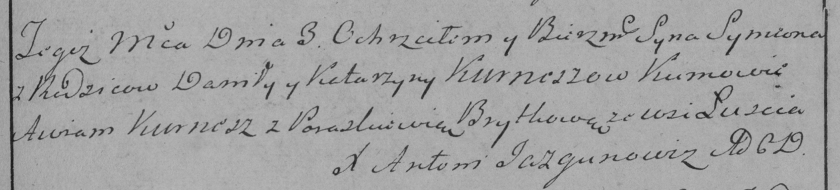 Tegoż Mca Dnia 3. Ochrzciłem y Bierzm. Syna Symiona
z Rodzicow Daniły y Katarzyny Kurneszow Kumowie
Awram Kurnesz z Paraskiewią Brytkową ze wsi Luscia
X Antoni Jazgunowicz